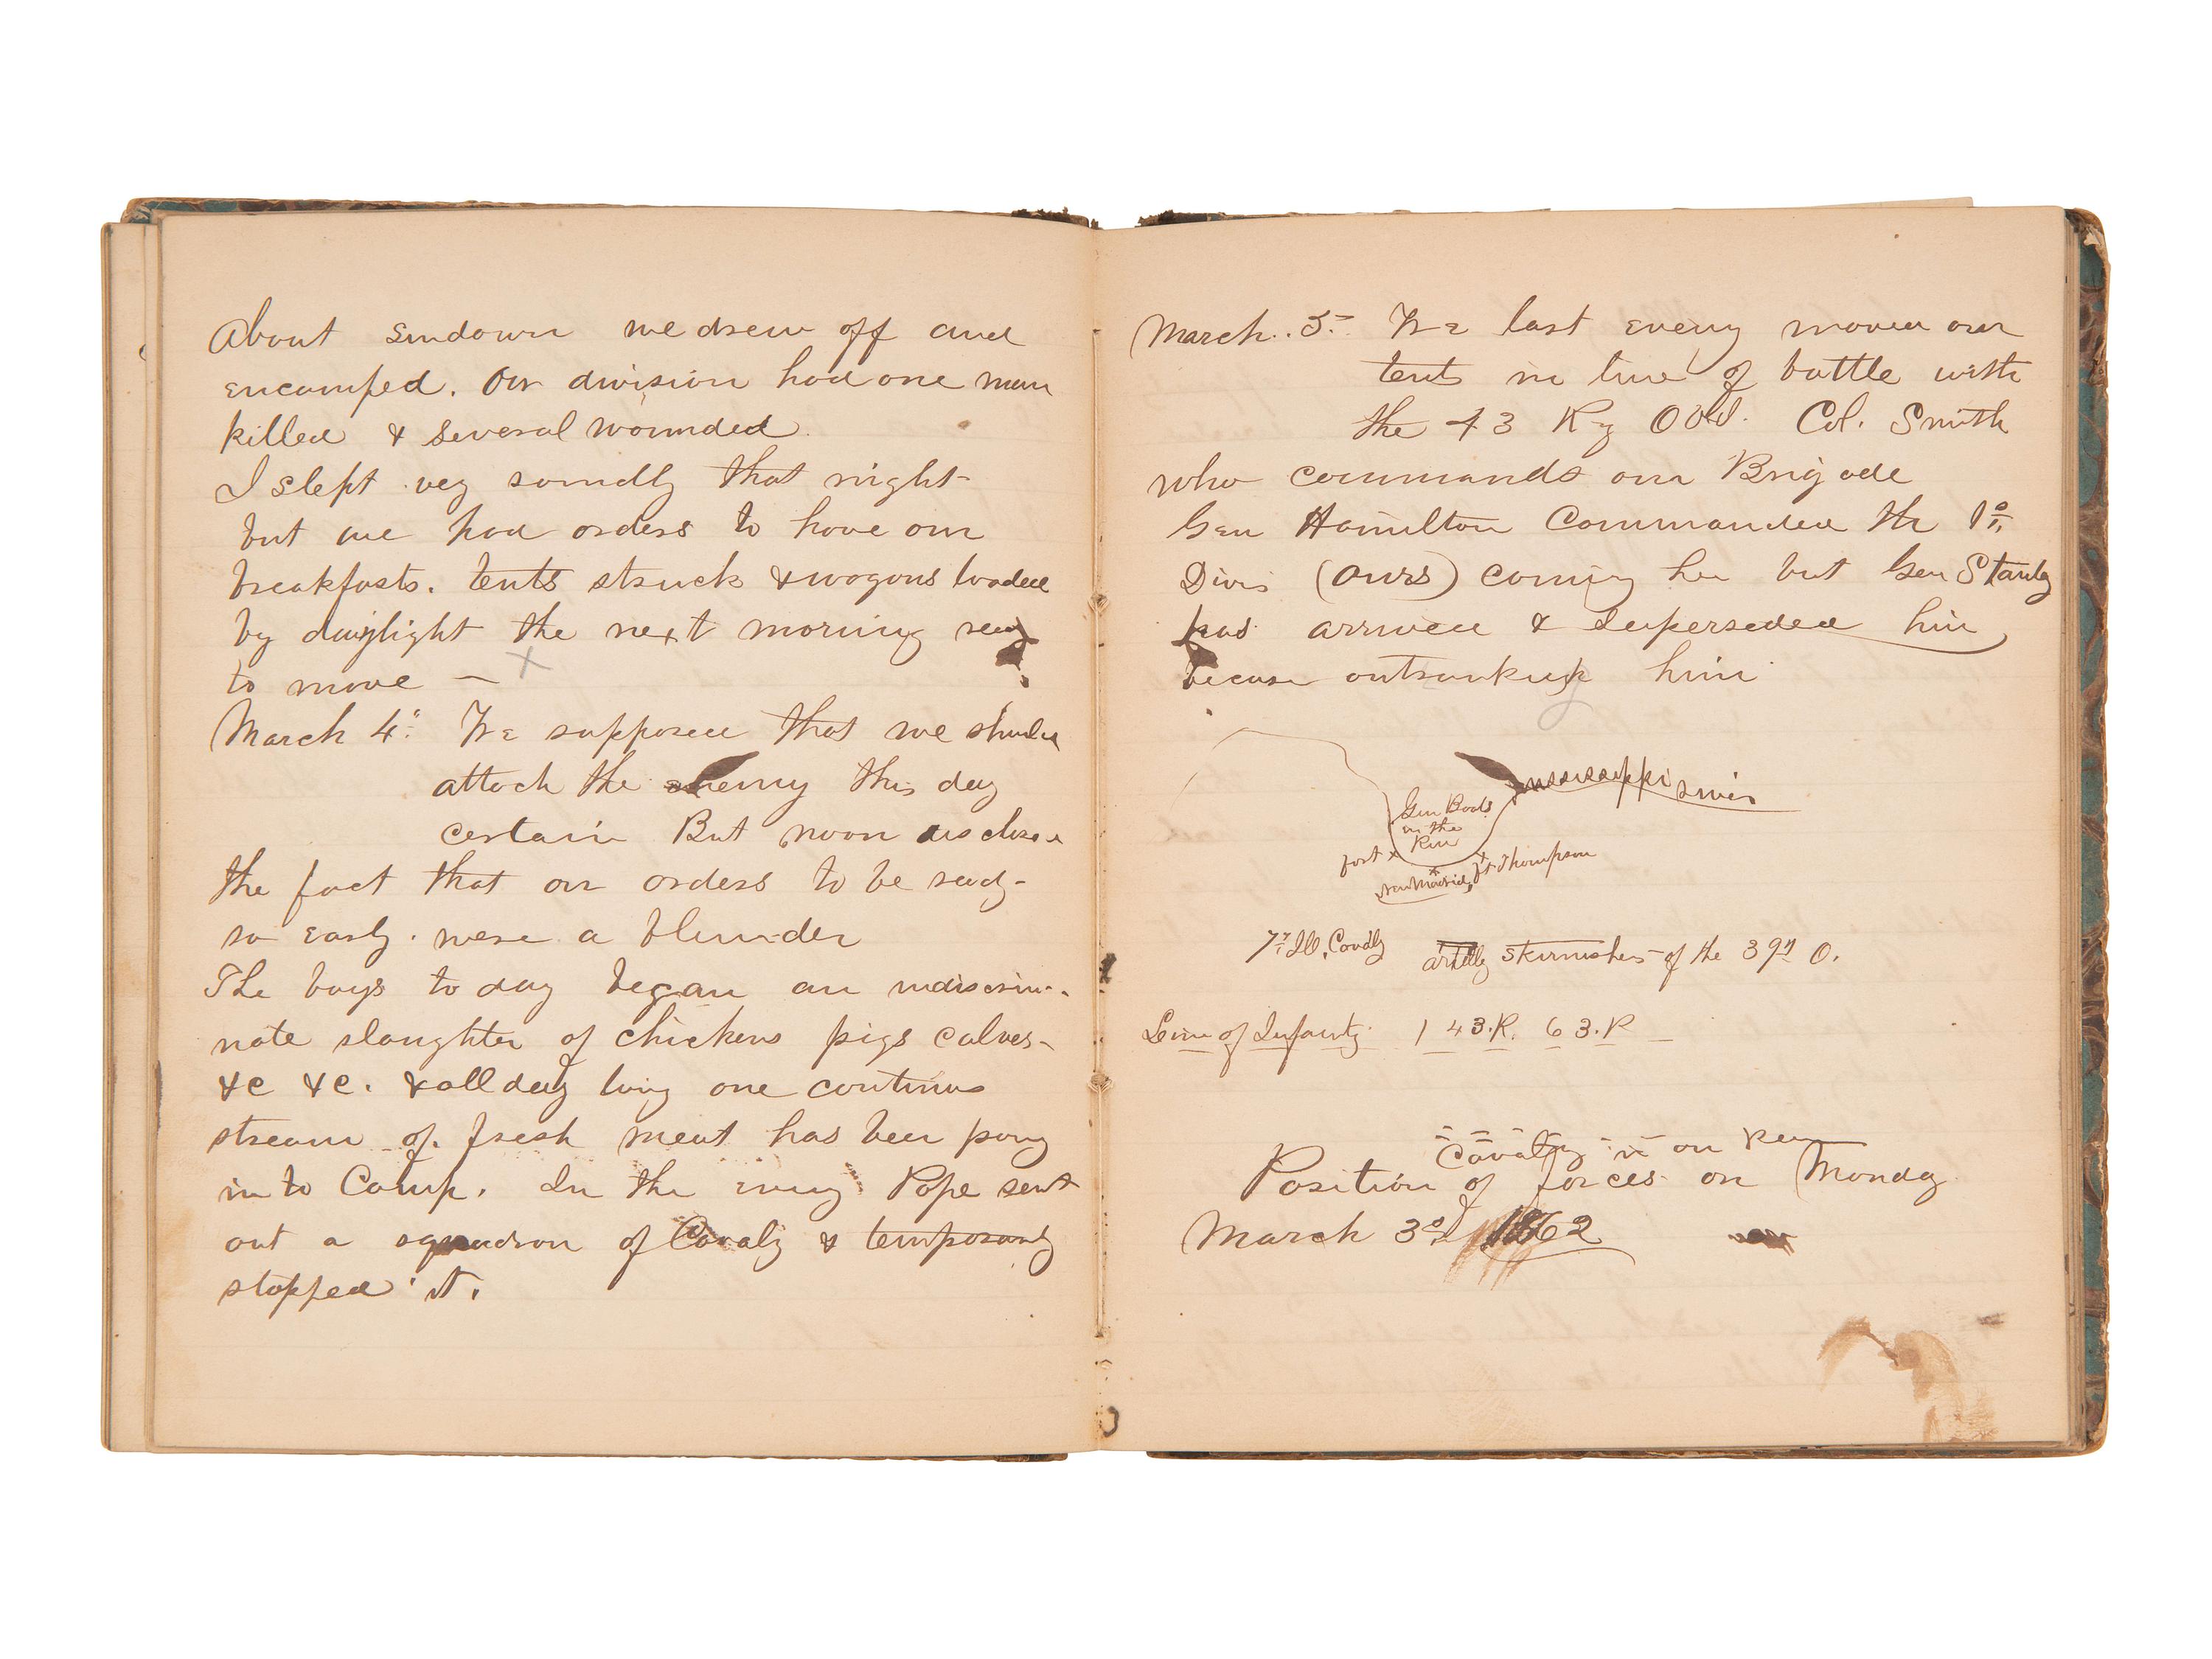 About sundown we drew off and
encamped. Our division had one man
killed & several wounded.
I slept vey soundly that night-
but we had orders to have our
breakfasts. tents struck & wagons loaded
by daylight the next morning
to move —
March 4th We supposed that we should
attack the enemy this day
certain But noon disclosed
the fact that our orders to be ready-
so early. were a blunder
The boys to day began an indiscrim-
nate slaughter of chickens pigs calves-
&c &c. & all day long one continus
stream of fresh meat has been
in to Camp. In the eveng Pope sent
out a squadron of Cavaly & temporarly
stopped it.
March. 5th We last eveng moved our
tents in line of battle with
the 43 Rg OVI. Col. Smith
who commands our Brigade
Gen Hamilton Commanded the 1st
Divis (ours) coming her but Gen Stanly
has arrived & superseded him
becuse outranking him
Mississippi River
Gun Boats
in the
Riv
fort x x Ft Thompson
New Madrid
7th Ill. Cavaly artilly skirmishers of the 39th O.
Line of Infanty. 1 43.R. 63.R
Cavalry in on Rear
Position of forces on Monday
March 3d 1862